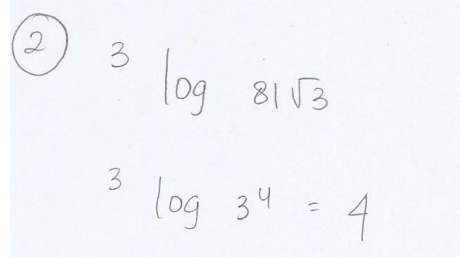 2
³ log 81√3
³ log 3⁴ = 4